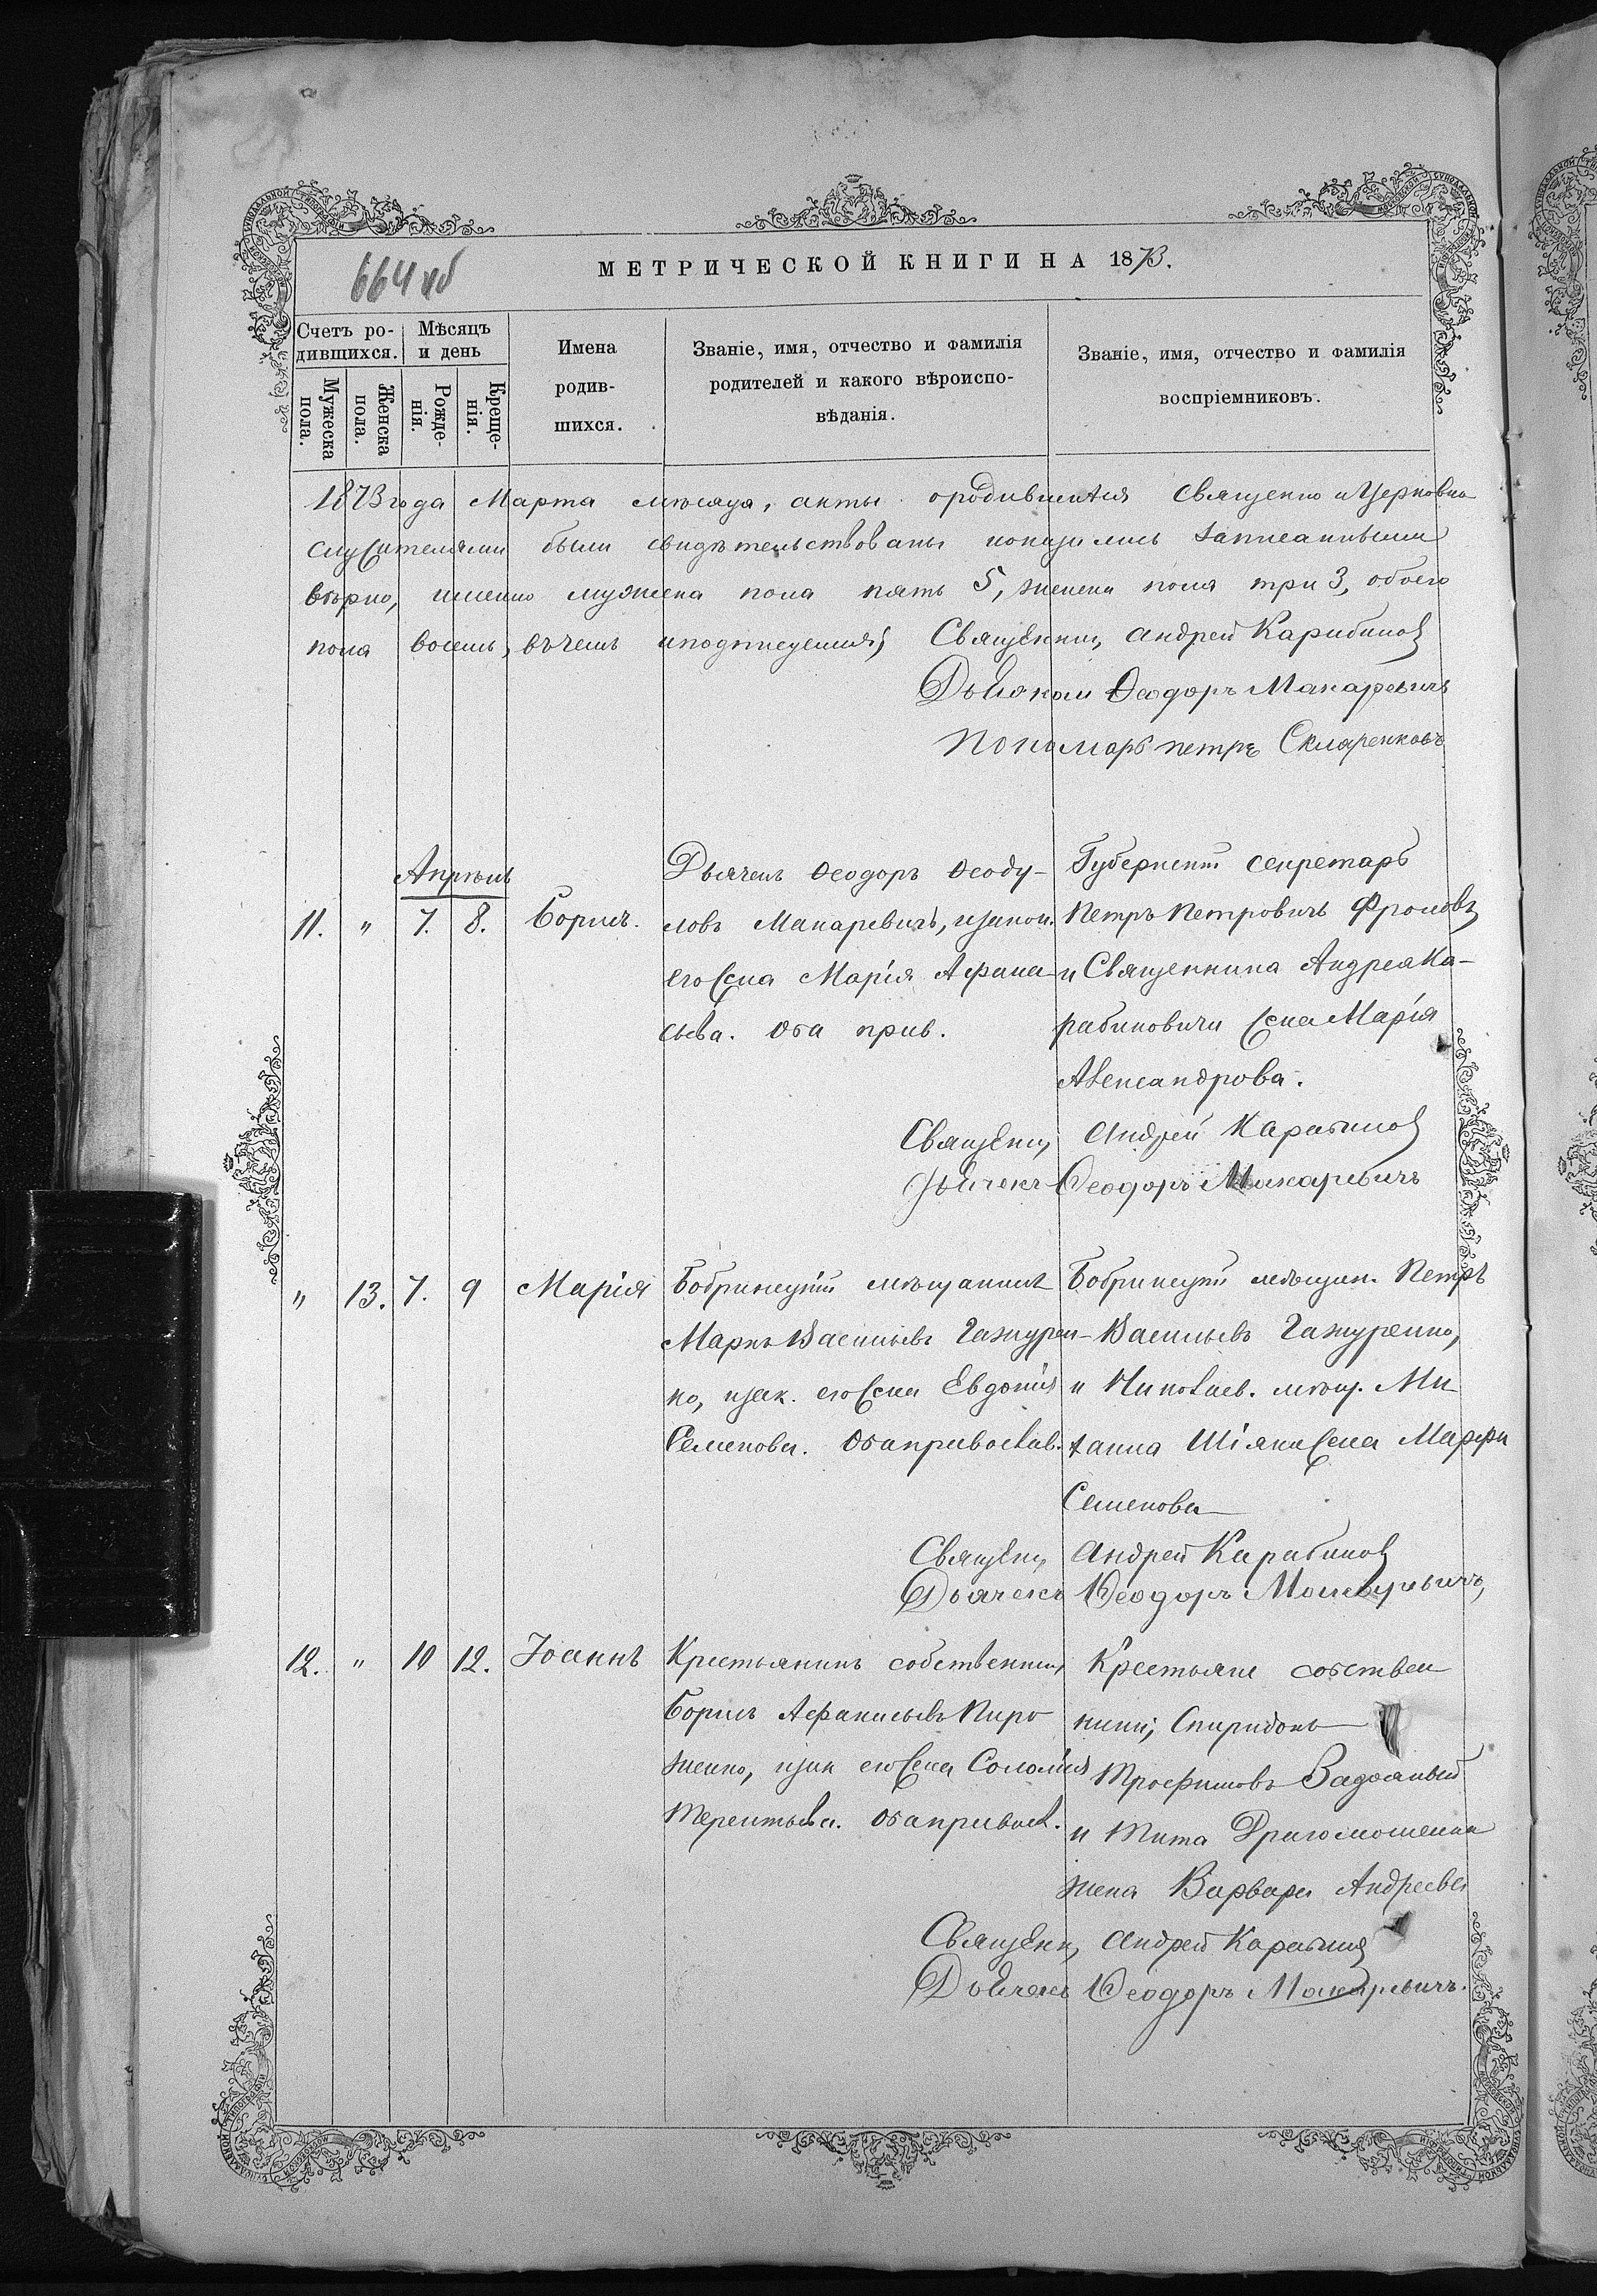 664 об
МЕТРИЧЕСКОЙ КНИГИ НА 1873.
Счетъ ро-
дившихся.
Мѣсяцъ
и день
Мужеска
пола.
Женска
пола.
Рожде-
нія.
Креще-
нія.
Имена
родив-
шихся.
Званіе, имя, отчество и фамилія
родителей и какого вѣроиспо-
вѣданія.
Званіе, имя, отчество и фамилія
воспріемниковъ.
1873 года Марта мѣсяца, акты о родившихся Священно и Церковно
служителями были свидѣтельствованы
вѣрно, именно мужеска пола пять 5, женска пола три 3, обоего
пола восемь, въ чемъ и подписуемся; Священникъ Андрей Карабинов
Дьячокъ Ѳеодоръ Макаревичъ
Пономарь петръ Скляренковъ
Апрѣль
11. " 7. 8. Борисъ.
Дьячекъ Ѳеодоръ Ѳеоду-
ловъ Макаревичъ, и закон.
его жена Марія Афана-
сьева. Оба прав.
Губернскій секретарь
Петръ Петровичъ Фроловъ
и Священника Андрея Ка-
рабиновича жена Марія
Александрова.
Священникъ Андрей Карабинов
Дьячекъ Ѳеодоръ Макаревичъ
" 13. 7. 9 Марія
Бобринецкій мѣщанинъ
Маркъ Васильевъ Гажурен-
ко, и зак. его жена Евдокія
Семенова. Оба православ.
Бобринецкій мѣщан. Петръ
Васильевъ Гажуренко,
и Николаев. мѣщ. Ми-
хаила жена Марфа
Семенова
Священникъ Андрей Карабинов
Дьячекъ Ѳеодоръ Макаревичъ,
12. " 10 12. Іоаннъ
Крестьянинъ собственникъ
Борисъ Афанасьевъ Пиро
женко, и зак его жена Соломія
Терентьева. Оба правосл.
Крестьяне собствен
ники, Спиридонъ
Трофимовъ Задояный
и Тита
жена Варвара Андреева
Священникъ Андрей Карабинов
Дьячекъ Ѳеодоръ Макаревичъ.